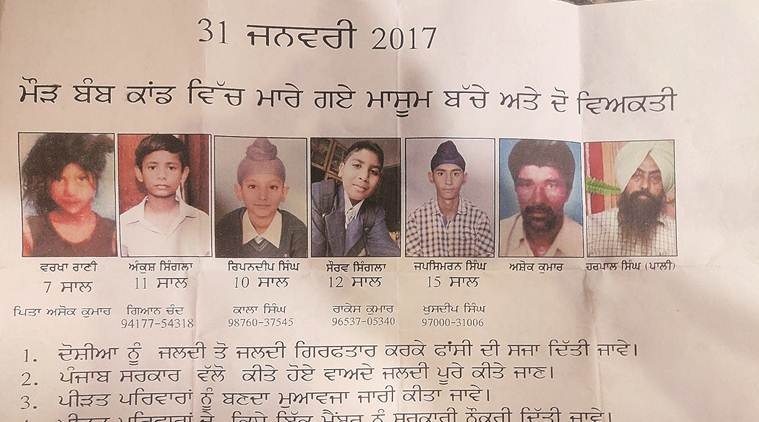 31 ਜਨਵਰੀ 2017
ਮੌੜ ਬੰਬ ਕਾਂਡ ਵਿੱਚ ਮਾਰੇ ਗਏ ਮਾਸੂਮ ਬੱਚੇ ਅਤੇ ਦੋ ਵਿਅਕਤੀ
ਵਰਖਾ ਰਾਣੀ ਅੰਕੁਸ਼ ਸਿੰਗਲਾ ਰਿਪਨਦੀਪ ਸਿੰਘ ਸੌਰਵ ਸਿੰਗਲਾ ਜਪਸਿਮਰਨ ਸਿੰਘ ਅਸ਼ੋਕ ਕੁਮਾਰ ਹਰਪਾਲ ਸਿੰਘ (ਪਾਲੀ)
7 ਸਾਲ 11 ਸਾਲ 10 ਸਾਲ 12 ਸਾਲ 15 ਸਾਲ
ਪਿਤਾ ਅਸੋਕ ਕੁਮਾਰ ਗਿਆਨ ਚੰਦ ਕਾਲਾ ਸਿੰਘ ਰਾਕੇਸ ਕੁਮਾਰ ਖੁਸਦੀਪ ਸਿੰਘ
94177-54318 98760-37545 96537-05340 97000-31006
1. ਦੋਸ਼ੀਆ ਨੂੰ ਜਲਦੀ ਤੋ ਜਲਦੀ ਗਿਰਫਤਾਰ ਕਰਕੇ ਫਾਂਸੀ ਦੀ ਸਜਾ ਦਿੱਤੀ ਜਾਵੇ।
2. ਪੰਜਾਬ ਸਰਕਾਰ ਵੱਲੋ ਕੀਤੇ ਹੋਏ ਵਾਅਦੇ ਜਲਦੀ ਪੂਰੇ ਕੀਤੇ ਜਾਣ।
3. ਪੀੜਤ ਪਰਿਵਾਰਾਂ ਨੂੰ ਬਣਦਾ ਮੁਆਵਜਾ ਜਾਰੀ ਕੀਤਾ ਜਾਵੇ।
4. ਪੀੜਤ ਪਰਿਵਾਰਾਂ ਦੇ ਕਿਸੇ ਇੱਕ ਮੈਂਬਰ ਨੂੰ ਸਰਕਾਰੀ ਨੌਕਰੀ ਦਿੱਤੀ ਜਾਵੇ।